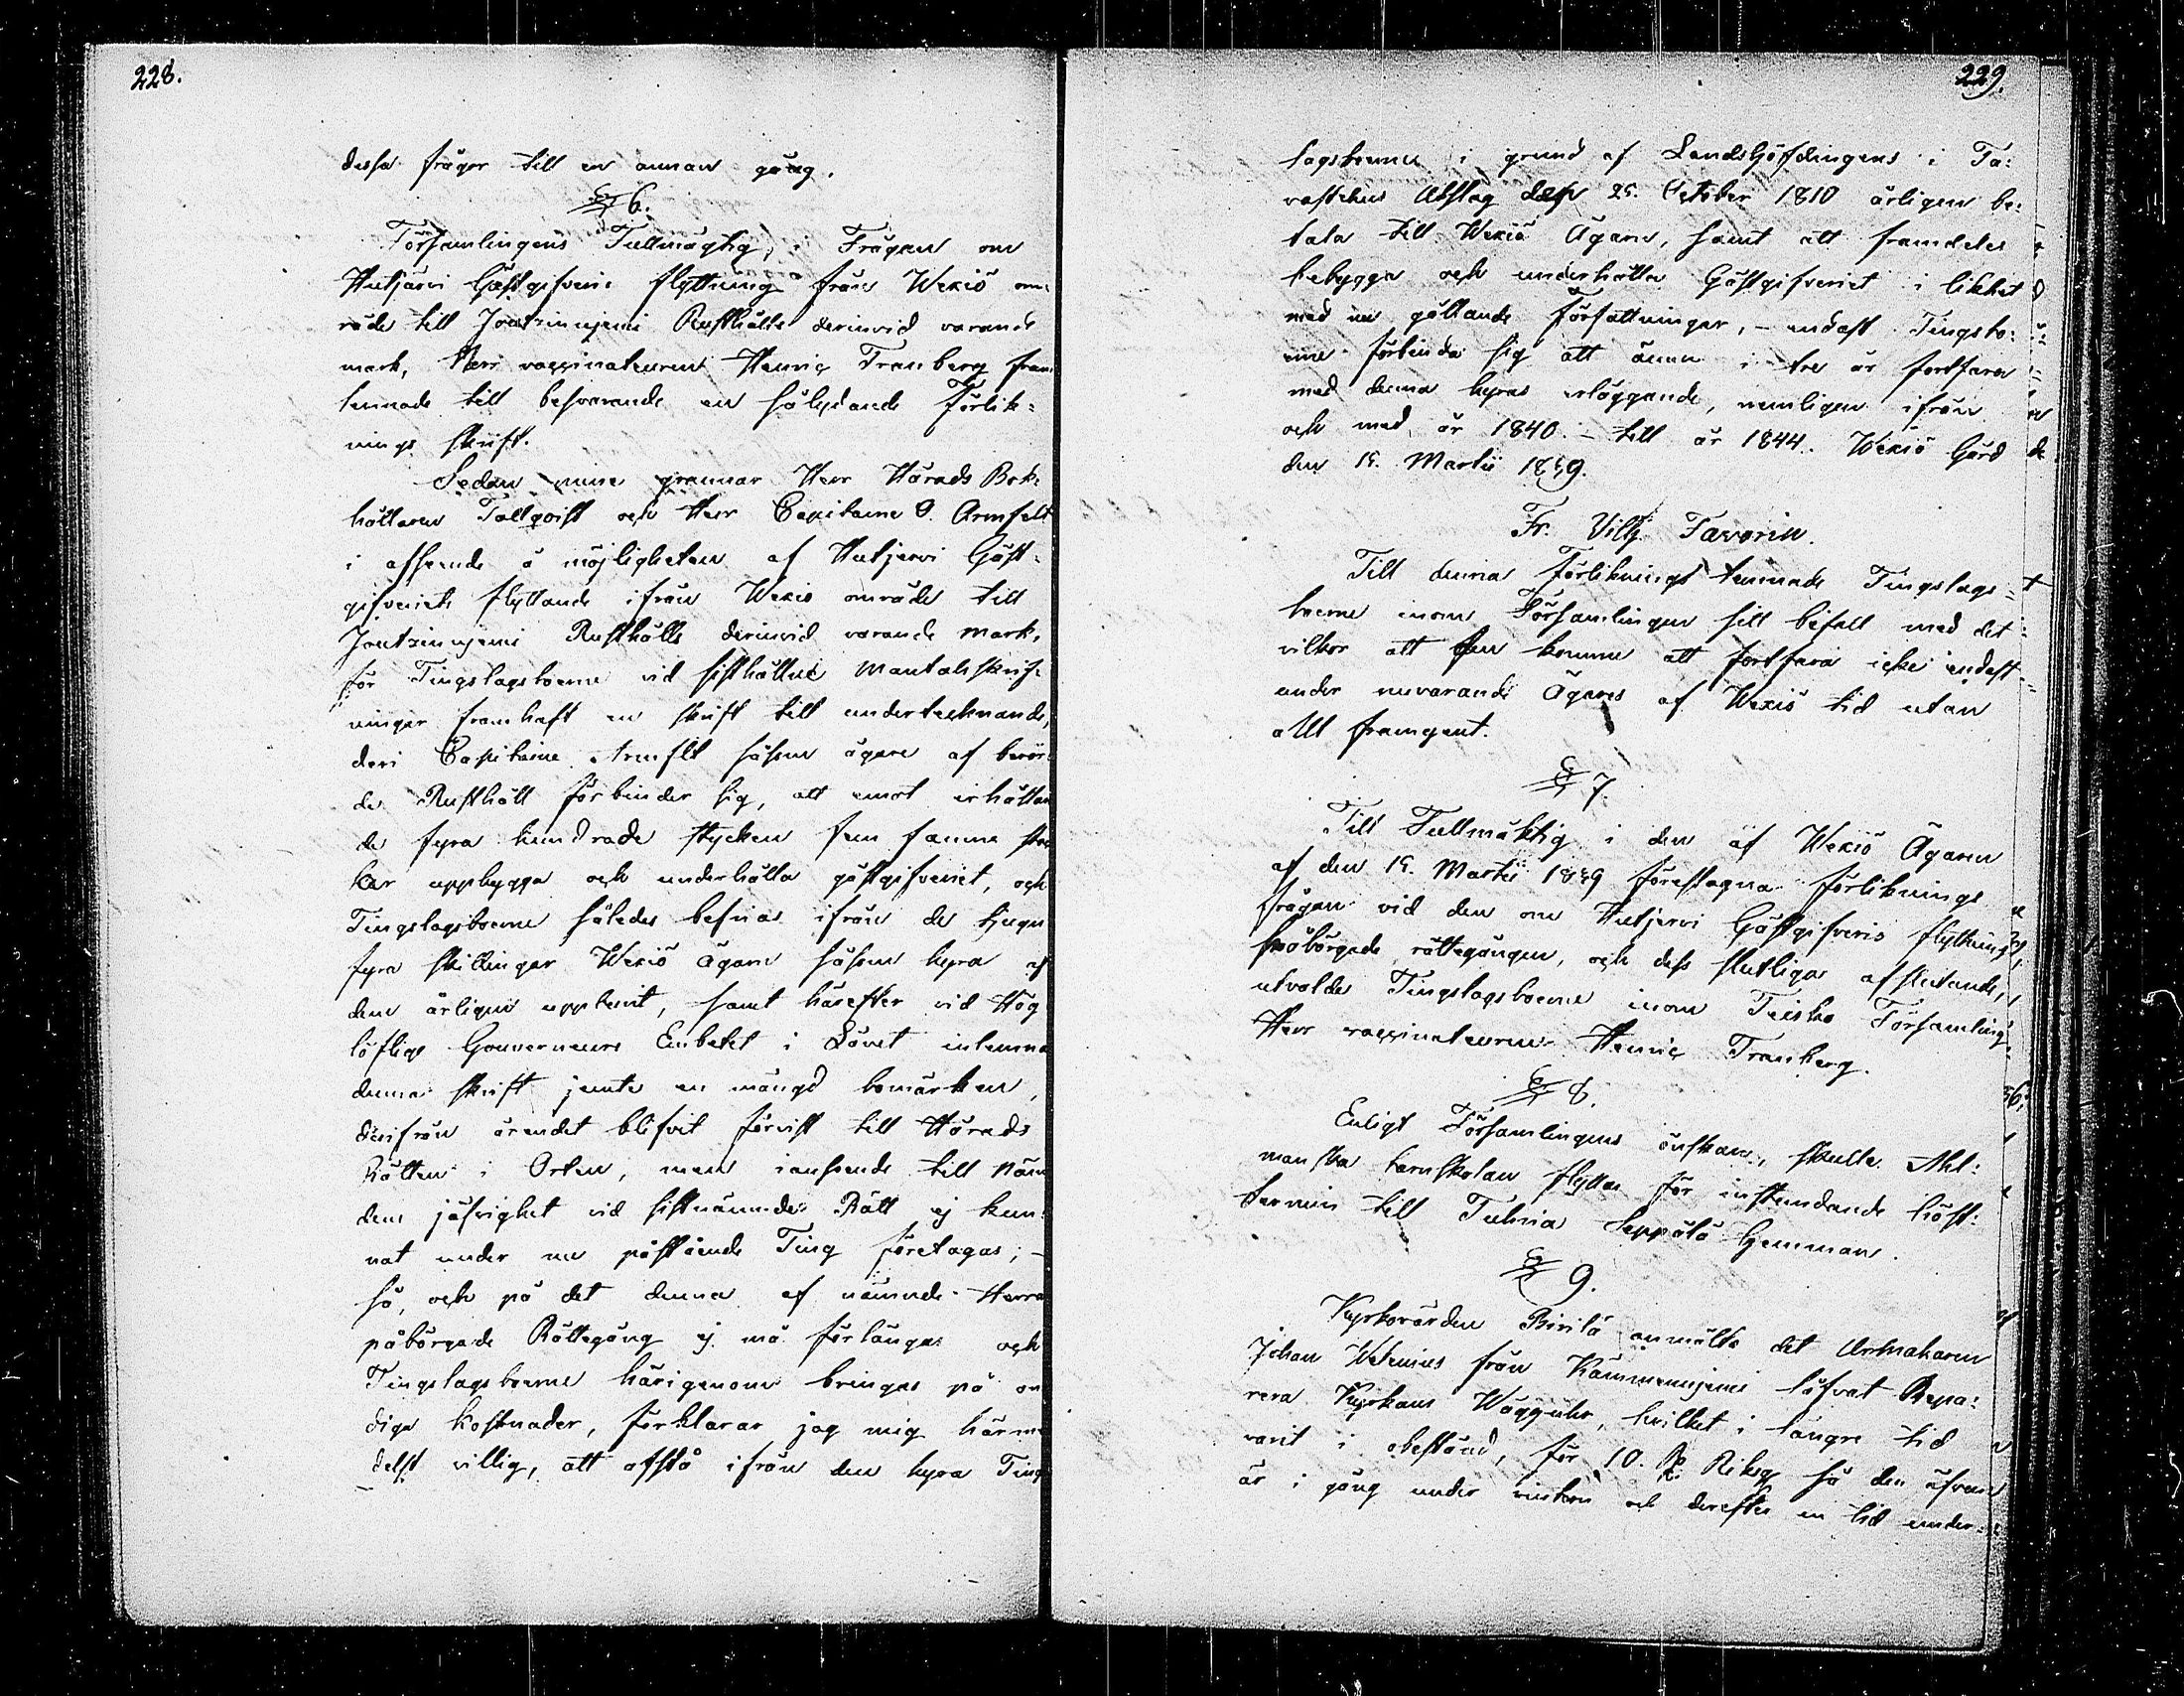 228.
dessa frågor till en annan gång.
§ 6.
Församlingens Fullmägtig, i Frågan om
Hutjärvi Gästgifveri flyttning från Wexiö om-
råde till Joutzinnjemi Rusthålls derinvid varande
mark, Herr vaccinateuren Henric Tranberg fram
lemnade till besvarande en så lydande Förlik-
nings skrift.
Sedan mine grannar Herr Härads Bok-
hållaren Tallqvist och Herr Capitaine O. Armfelt
i afseende å möjligheten af Hutjervi Gäst-
gifveriets flyttande ifrån Wexiö område till
Joutzinnjemi Rusthålls derinvid varande mark,
för Tingslagsboerne vid sisthållne Mantalsskrif-
ningar framhaft en skrift till undertecknande,
deri Capitaine Armflt såsom ägare af berör-
de Rusthåll förbinder sig, att emot erhållan
de fyra hundrade stycken fem famns stoc
kar uppbygga och underhålla gästgifveriet, och
Tingslagsboerne således befrias ifrån de tjugu
fyra skillingar Wexiö ägare såsom hyra af
dem årligen uppburit, samt härefter vid Hög
löflige Gouverneurs Embetet i Länet inlemna
denna skrift jemte en mängd bomärken,
derifrån ärendet blifvit förvist till Härads
Rätten i Orten, men i anseende till Näm
dens jäfvighet vid sistnämnde Rätt ej kun-
nat under nu påstående Ting företagas; -
så, och på det denna af nämnde Herrar
påbörgade Rättegång ej må förlängas och
Tingslagsboerne härigenom bringas på on
diga kostnader, förklarar jag mig härme
delst villig, att afstå ifrån den hyra Tings
229.
lagsboerne i grund af Landshöfdingens i Ta-
vastehus Utslag den 25. October 1810 årligen be-
tala till Wexiö Ägare, samt att framdeles
bebygga och underhålla Gästgifveriet i likhet
med nu gällande Författningar, - endast Tingsbo-
erne förbinda sig att ännu i tre år fortfara
med denna hyras erläggande, nemligen ifrån
och med år 1840. - till år 1844. Wexiö Gård
den 15. Martii 1839.
Fr. Vilh. Favorin.
Till denna Förliknings lemnade Tingslags-
boerne inom Församlingen sitt bifall med det
vilkor att den komme att fortfara icke endast
under nuvarande Ägares af Wexiö tid utan
allt framgent.
§ 7.
Till Fullmäktig i den af Wexiö Ägaren
af den 15. Martii 1839 föreslagna förliknings
frågan vid den om Hutjervi Gästgifveris flyttning
påbörgade rättegången, och dess slutliga afslutande,
utvalde Tingslagsboerne inom Teisko Församling
Herr vaccinateuren Henric Tranberg.
§ 8.
Enligt Församlingens önskan, skulle Ahl-
manska barnskolan flyttas för instundande höst-
termin till Tulmia Seppälä Hemman.
§ 9.
Kyrkovärden Pirilä anmälte det Urmakaren
Johan Wetenius från Kämmenniemi låfvat Repa-
rera Kyrkans Wäggühr, hvilket i längre tid
varit i obestånd, för 10. R. Riksg. så den äfven
är i gång under vintern och derefter en tid under-